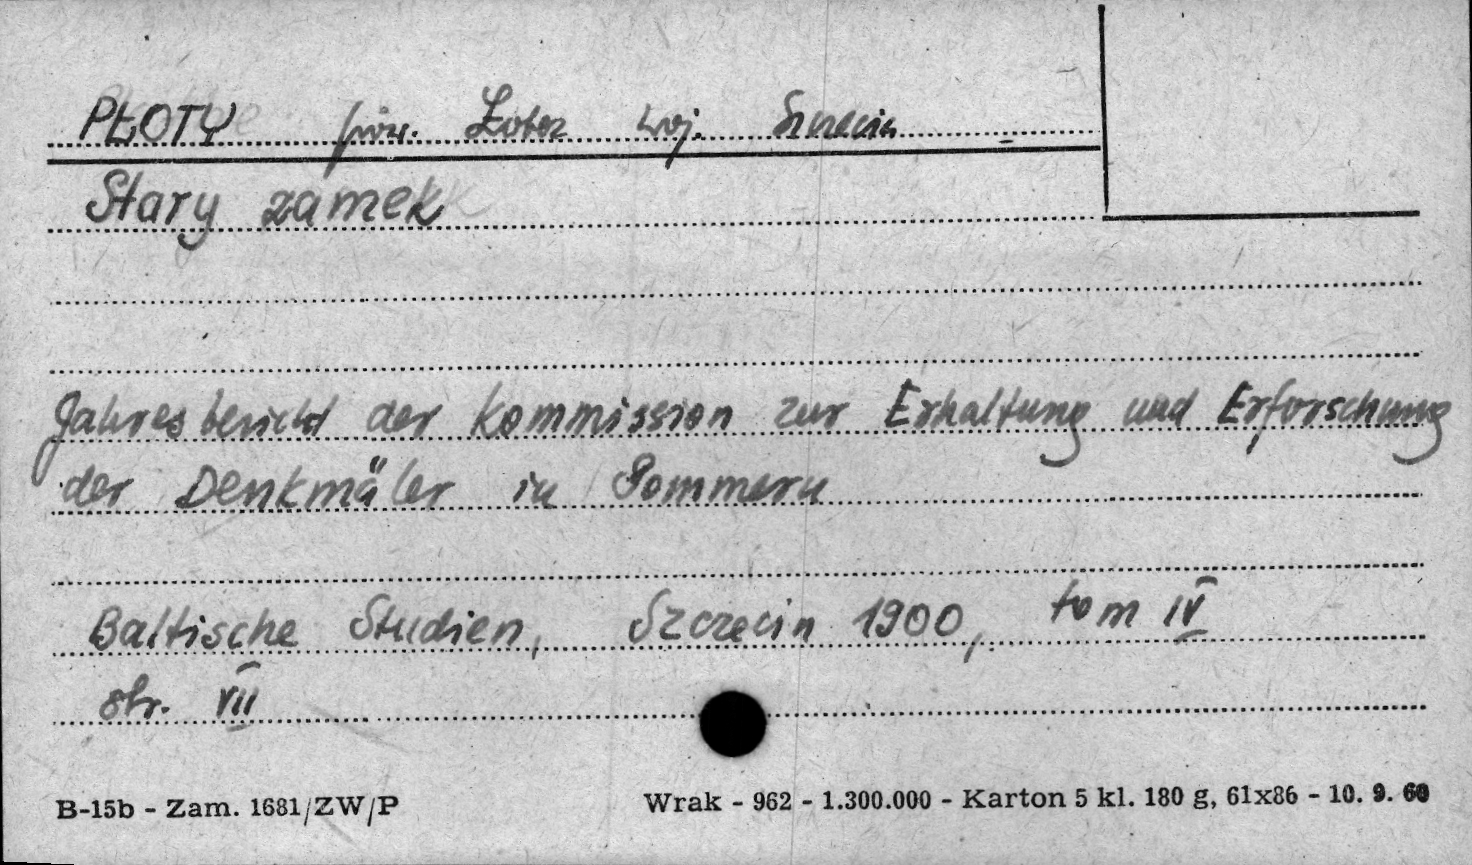 PŁOTY pow. Łobez woj. Szczecin
Stary zamek
Jahresbericht der Kommission zur Erhaltung und Erforschung
der Denkmäler in Pommern
Baltische Studien, Szczecin 1900, tom IV
str. VII
B-15b - Zam. 1681/ZW/P
Wrak - 962 - 1.300.000 - Karton 5 kl. 180 g, 61x86 - 10. 9. 60